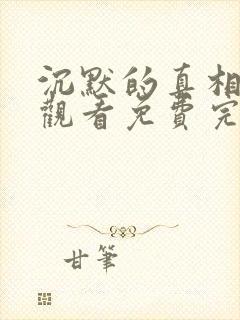 沉默的真相
觀看免費完
甘筆